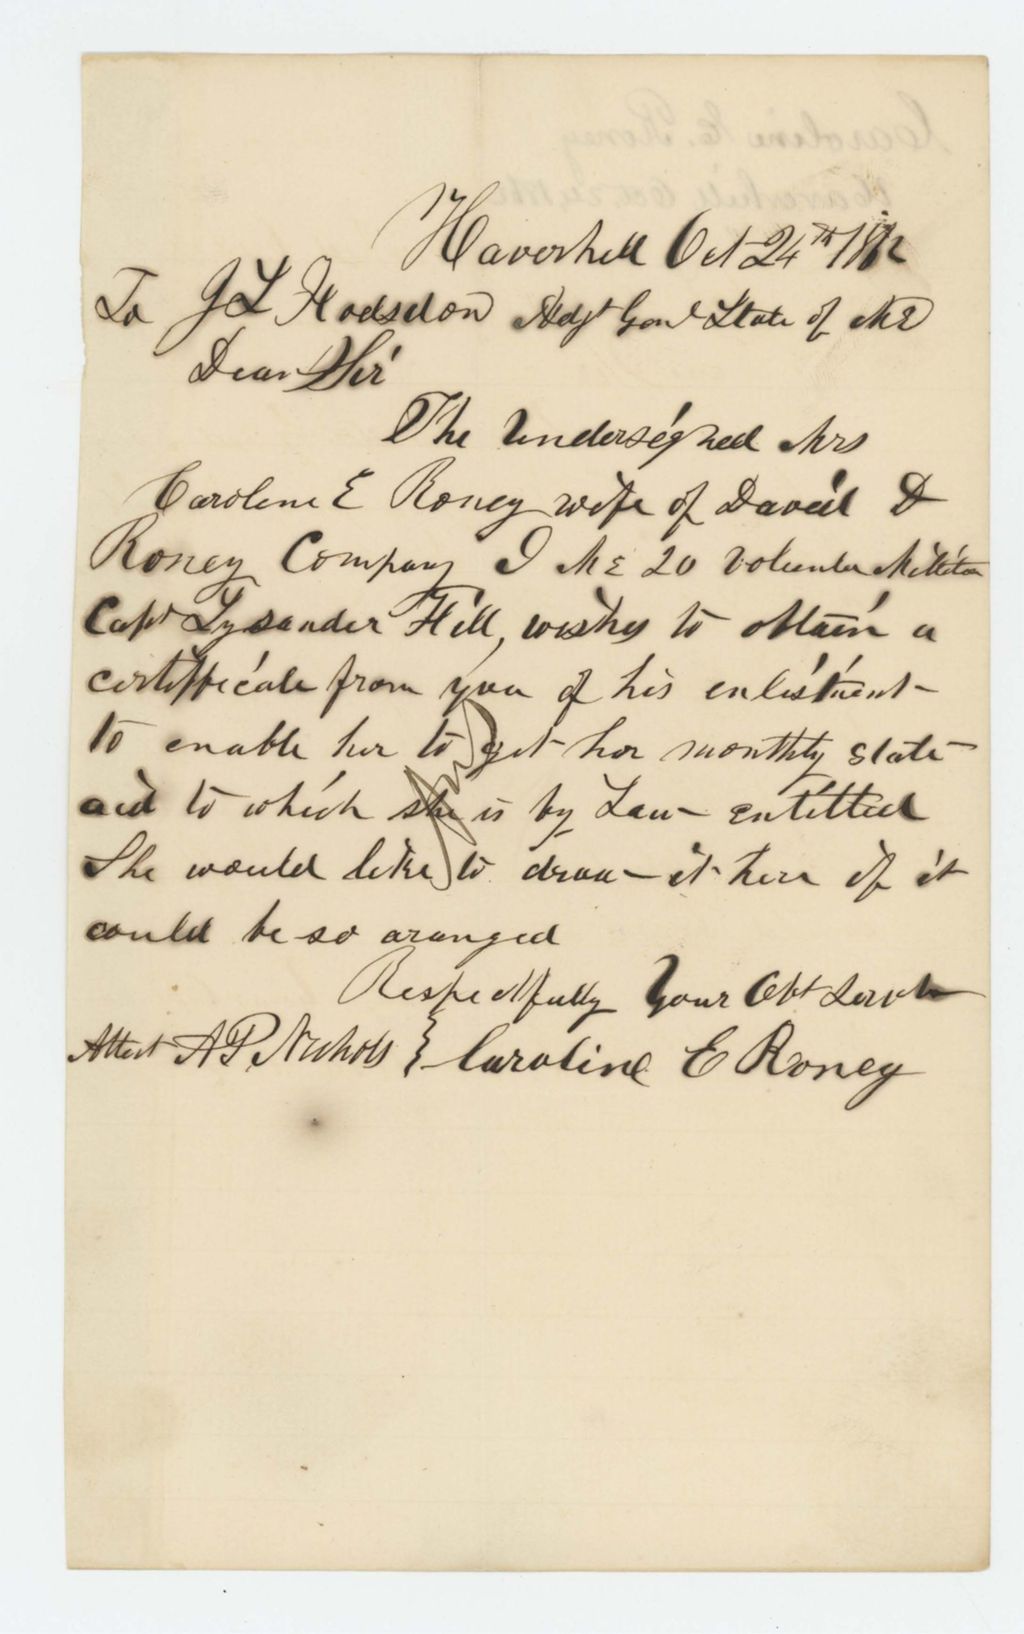 Haverhill Oct 24th 1862
To J L Hodsdon Adjt Genl State of ME
Dear Sir
The Undersigned Mrs
Caroline E Roney wife of David D
Roney Company I ME 20 Volunter Millitia
Capt Lysander Hill, wishes to obtain a
certifficate from you of his enlistment
to enable her to get her monthly state
aid to which she is by Law entitled
She would like to draw it here if it
could be so aranged
Respectfully Your Obt Servt
Attest A P Nichols } Caroline E Roney
Ansd